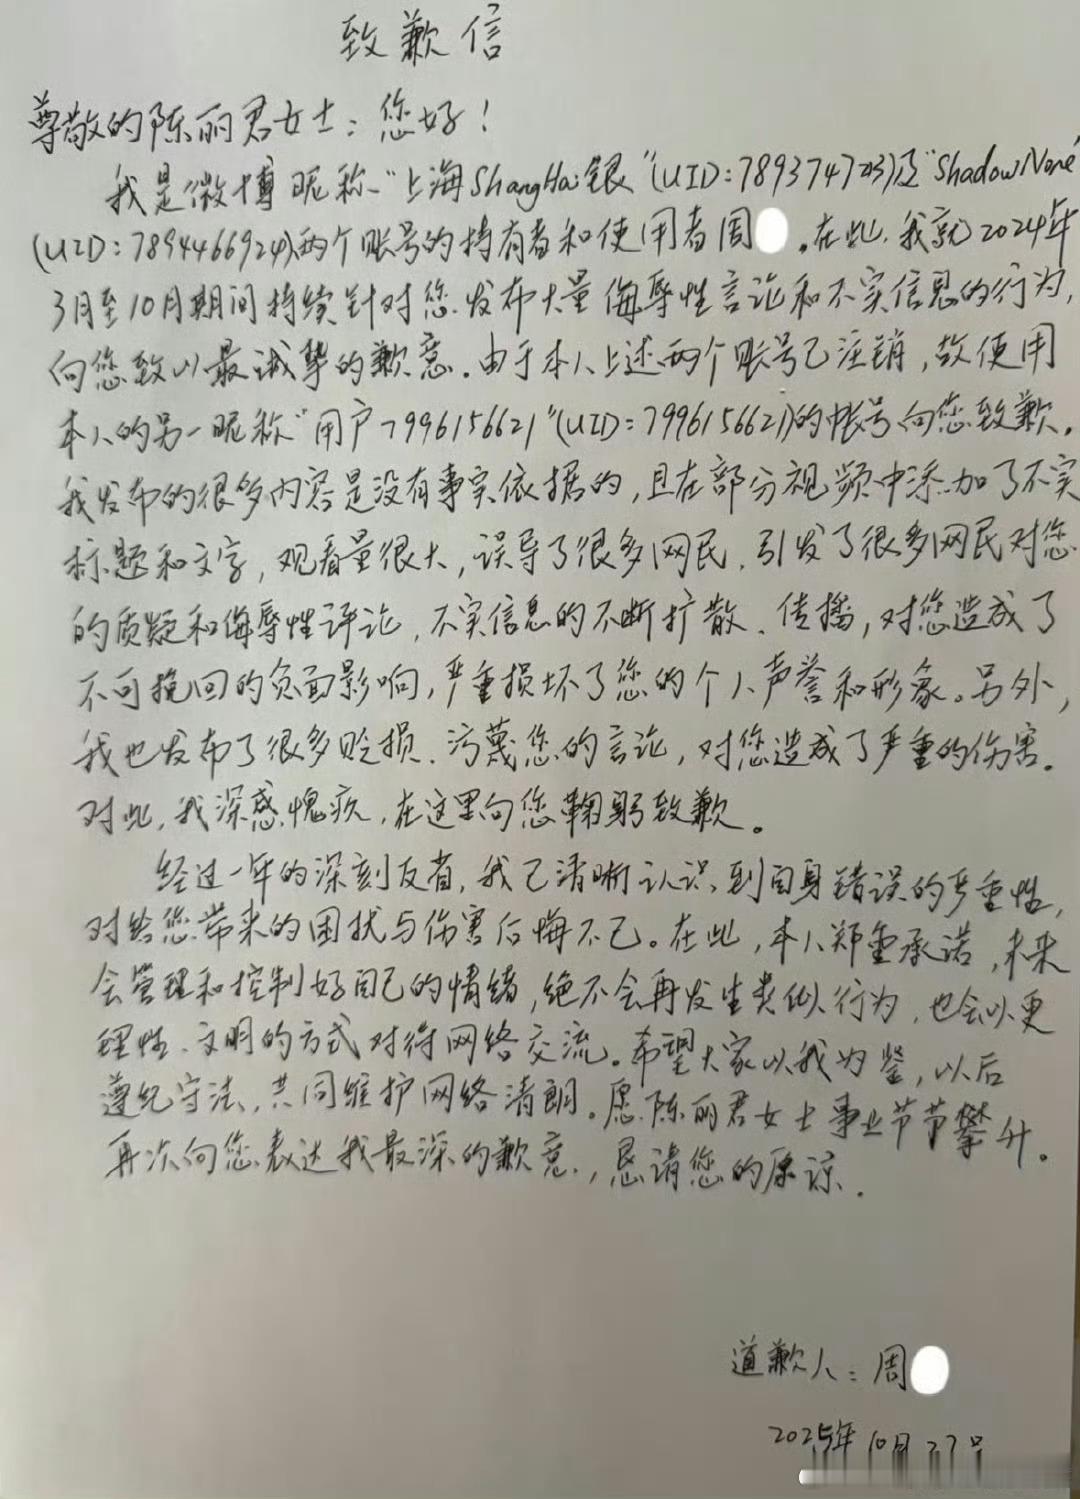 致歉信
尊敬的陈丽君女士：您好！
我是微博昵称“上海ShangHai银”(UID:7893747213)及“ShadowNone”
(UID:7894466924)两个账号的持有者和使用者周 。在此，我就2024年
3月至10月期间持续针对您发布大量侮辱性言论和不实信息的行为，
向您致以最诚挚的歉意。由于本人上述两个账号已注销，故使用
本人的另一昵称“用户7996156621”(UID:7996156621)的帐号向您致歉。
我发布的很多内容是没有事实依据的，且在部分视频中添加了不实
标题和文字，观看量很大，误导了很多网民，引发了很多网民对您
的质疑和侮辱性评论，不实信息的不断扩散、传播，对您造成了
不可挽回的负面影响，严重损坏了您的个人声誉和形象。另外，
我也发布了很多贬损、污蔑您的言论，对您造成了严重的伤害。
对此，我深感愧疚，在这里向您鞠躬致歉。
经过一年的深刻反省，我已清晰认识到自身错误的严重性，
对给您带来的困扰与伤害后悔不已。在此，本人郑重承诺，未来
会管理和控制好自己的情绪，绝不会再发生类似行为，也会以更
理性、文明的方式对待网络交流。希望大家以我为鉴，以后
遵纪守法，共同维护网络清朗。愿陈丽君女士事业节节攀升。
再次向您表达我最深的歉意，恳请您的原谅。
道歉人：周
2025年10月27日